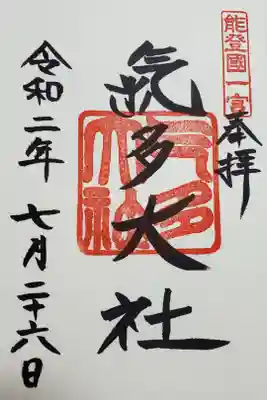 能登國一宮
奉拝
氣多大社
氣多大社
令和二年七月二十六日